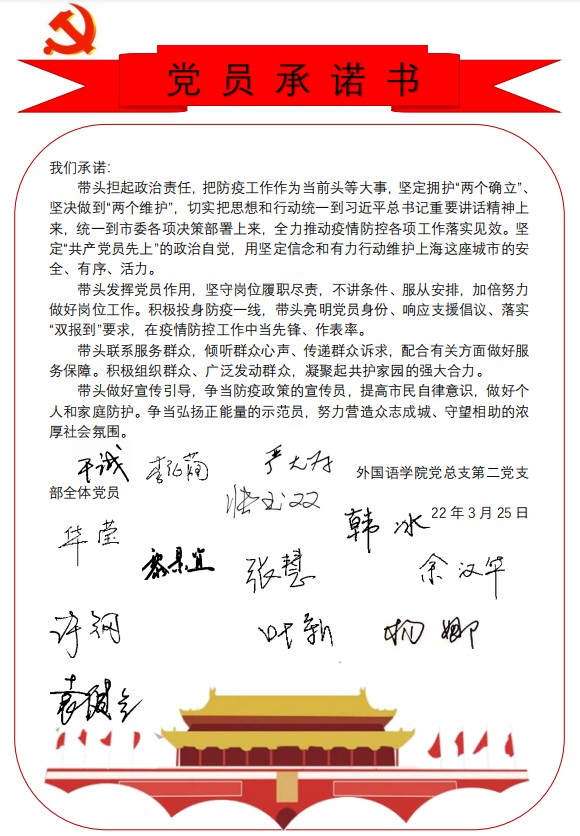 党员承诺书
我们承诺：
带头担起政治责任，把防疫工作作为当前头等大事，坚定拥护“两个确立”、
坚决做到“两个维护”，切实把思想和行动统一到习近平总书记重要讲话精神上
来，统一到市委各项决策部署上来，全力推动疫情防控各项工作落实见效。坚
定“共产党员先上”的政治自觉，用坚定信念和有力行动维护上海这座城市的安
全、有序、活力。
带头发挥党员作用，坚守岗位履职尽责，不讲条件、服从安排，加倍努力
做好岗位工作。积极投身防疫一线，带头亮明党员身份、响应支援倡议、落实
“双报到”要求，在疫情防控工作中当先锋、作表率。
带头联系服务群众，倾听群众心声、传递群众诉求，配合有关方面做好服
务保障。积极组织群众、广泛发动群众，凝聚起共护家园的强大合力。
带头做好宣传引导，争当防疫政策的宣传员，提高市民自律意识，做好个
人和家庭防护。争当弘扬正能量的示范员，努力营造众志成城、守望相助的浓
厚社会氛围。
外国语学院党总支第二党支
部全体党员
22 年 3 月 25 日
华莹
韩冰
张慧
余汉华
许钢
叶新
杨娜